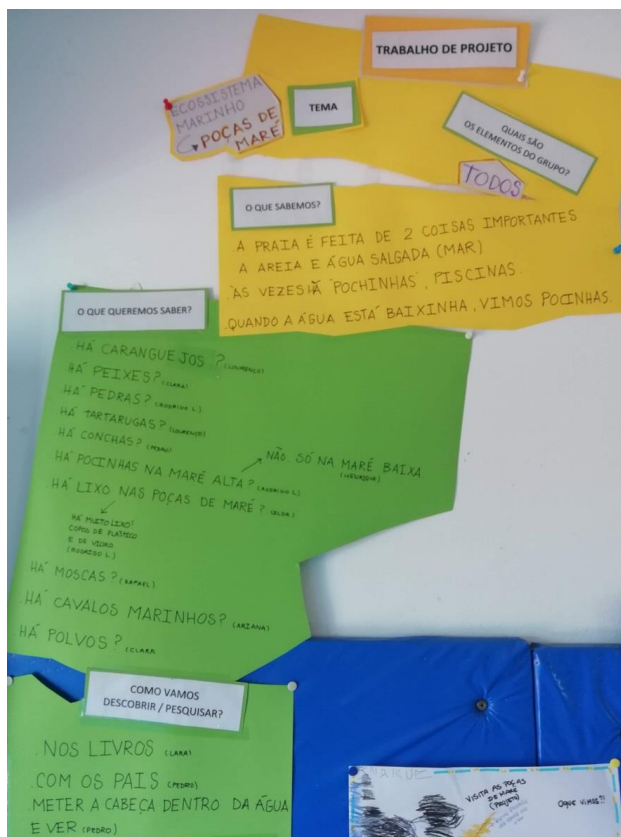 TRABALHO DE PROJETO
ECOSSISTEMA
MARINHO
POÇAS DE
MARÉ
TEMA
QUAIS SÃO
OS ELEMENTOS DO GRUPO?
TODOS
O QUE SABEMOS?
.A PRAIA É FEITA DE 2 COISAS IMPORTANTES
A AREIA E ÁGUA SALGADA (MAR)
.ÀS VEZES HÁ "POCHINHAS", PISCINAS.
.QUANDO A ÁGUA ESTÁ BAIXINHA, VIMOS POCINHAS.
O QUE QUEREMOS SABER?
HÁ CARANGUEJOS? (LOURENÇO)
.HÁ PEIXES? (CLARA)
HÁ PEDRAS? (RODRIGO L.)
HÁ TARTARUGAS? (LOURENÇO)
HÁ CONCHAS? (PEDRO)
HÁ POCINHAS NA MARÉ ALTA? (RODRIGO L.)
NÃO. SÓ NA MARÉ BAIXA
HÁ LIXO NAS POÇAS DE MARÉ? (ELOA)
HÁ MUITO LIXO!
COPOS DE PLÁSTICO
E DE VIDRO
(RODRIGO L.)
HÁ MOSCAS? (RAFAEL)
.HÁ CAVALOS MARINHOS? (ARIANA)
.HÁ POLVOS? (CLARA
COMO VAMOS
DESCOBRIR / PESQUISAR?
.NOS LIVROS (LARA)
.COM OS PAIS (PEDRO)
METER A CABEÇA DENTRO DA ÁGUA
E VER (PEDRO)
VISITA ÀS POÇAS
DE MARÉ
(PROJETO)
O QUE VIMOS?!